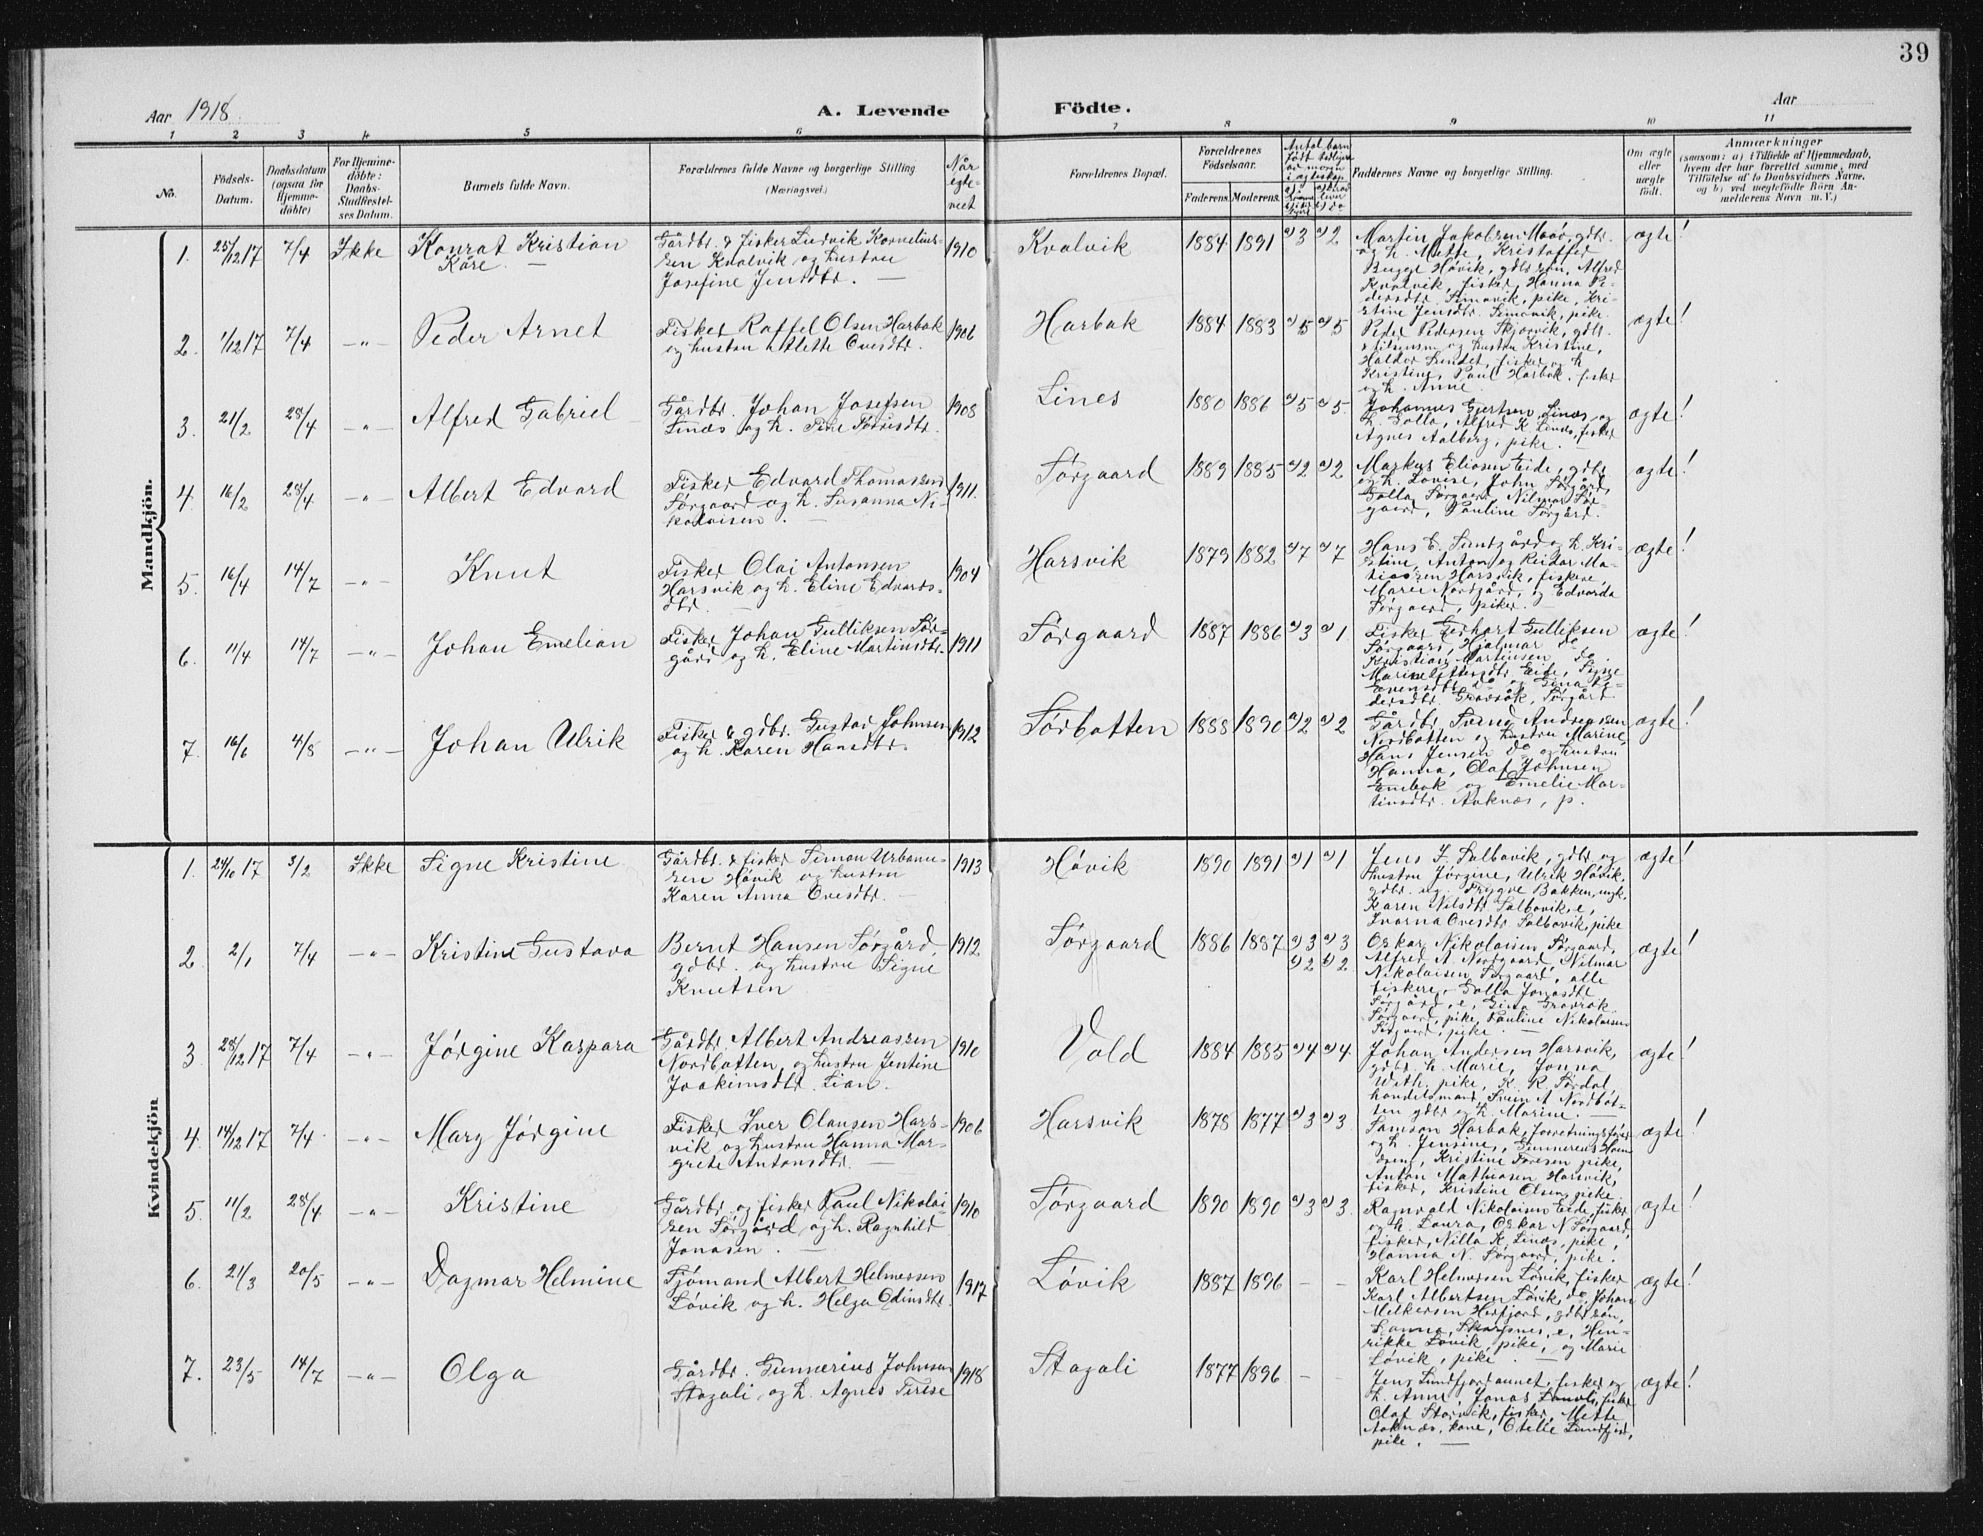 39
Aar 1918
A. Levende Födte.
Aar
1 2 3 4 5 6 7 8 9 10 11
No.
Födsels-
Datum.
Daabsdatum
(ogsaa for
Hjemme-
döbte)
For Hjemme-
döbte:
Daabs-
Stadfæstel-
ses Datum.
Barnets fulde Navn.
Forældrenes fulde Navne og borgerlige Stilling
(Næringsvei.)
Når
egte-
viet
Forældrenes Bopæl.
Forældrenes
Födselsaar.
Faderens. Moderens.
Faddernes Navne og borgerlige Stilling.
Om ægte
eller
uægte
födt.
Anmærkninger
(saasom: a) i Tilfælde af Hjemmedaab,
hvem der har forrettet samme, med
Tilföielse af to Daabsvidners Navne,
og b) ved uægtefödte Börn An-
melderens Navn m. V.)
Mandkjön.
1. 25/12 17 7/4 Ikke Konrat Kristian
Kåre. —
Gårdbr. & fisker Ludvik Kornelius-
sen Kvalvik og hustru
Josefine Jensdtr. —
1910 Kvalvik 1884 1891 a) 3 a) 2
Martin Jakobsen Moør, gdbr.
og h. Mette, Kristoffer
Bugge Hövik, gdbr søn, Alfred
Kvalvik, fisker, Hanna Pe-
dersdtr. Simavik, pike, Kri-
stine Jensdtr. Simavik, pike.
ægte!
2. 1/12 17 7/4 —"— Peder Arnet
Fisker Raffel Olsen Harbak
og hustru Alette Ovesdtr.
1906 Harbak 1884 1883 a) 5 a) 5
Peder Pedersen Skjærvik, gdbr.
og hustru Kristine,
Haldor Sundet, fisker og h
Kristine, Paul Harbak, fisker
og h. Anne.
ægte!
3. 21/2 28/4 —"— Alfred Gabriel
Gårdbr. Johan Josefsen
Linæs og h. Tine Tørrisdtr.
1908 Lines 1880 1886 a) 5 a) 5
Johannes Gjertsen Linæs og
h. Golla, Alfred K. Linæs, fisker
Agnes Aalberg, pike. —
ægte!
4. 16/2 28/4 —"— Albert Edvard
Fisker Edvard Thomassen
Sørgaard og h. Susanna Ni-
kolaisen. —
1911. Sørgaard 1889 1885 a) 2 a) 2
Markus Eliasen Eide, gdbr
og h. Lovise, John Sørgård,
Golla Sørgaard, Nilmar Sør-
gaard, Pauline Sørgård.
ægte!
5. 16/4 14/7 —"— Knut
Fisker Olai Antonsen
Harsvik og h. Eline Edvards-
dtr. —
1904 Harsvik 1879 1882 a) 7 a) 7
Hans E. Sundgård og h. Kri-
stine, Anton og Reidar Ma-
tiassen Harsvik, fiskere,
Marie Nordgård, og Edvarda
Sørgaard, piker. —
ægte!
6. 11/4 14/7 —"— Johan Emelian
Fisker Johan Gulliksen Sør-
gård og h. Eline Martinsdtr.
1911 Sørgaard 1887 1886 a) 3 a) 1
Fisker Gerhart Gulliksen
Sørgaard, Hjalmar do
Kristian Martinsen do.
Eide, Signe
do og Gina Pe-
dersdtr. Gravråk, Sørgård
ægte!
7. 16/6 4/8 —"— Johan Ulrik
Fisker & gdbr. Gustav Johnsen
og h. Karen Hansdtr.
1912 Sørbotten 1888 1890 a) 2 a) 2
Gårdbr. Svend Andreassen
Nordbotten og hustru Marine,
Hans Jensen do og hustru
Hanna, Olaf Johnsen
Enebak og Emelie Mar-
tinsdtr. Aaknæs, p.
ægte!
Kvindekjön
1. 24/10 17 3/2 Ikke Signe Kristine
Gårdbr. & fisker Simon Urbanu-
sen Hövik og hustru
Karen Anna Ovesdtr. —
1913 Hövik 1890 1891 a) 1 a) 1
Jens J. Salbovik, gdbr og
hustru Jørgine, Ulrik Hövik,
gdbr. ug. Trygve Bakken, ungk.
Karen Nilsdtr Salbovik, e,
Ivarna Ovesdtr Salbovik, pike
ægte!
2 2/1 7/4 —"— Kristine Gustava
Bernt Hansen Sørgård,
gdbr. og hustru Signe
Knutsen
1912 Sørgaard 1886 1887 a) 3 a) 3
b) 2 b) 2
Oskar Nikolaisen Sørgaard,
Alfred A. Nordgaard, Nilmar
Nikolaisen Sørgaard, alle
fiskere, Golla Jonasdtr
Sørgård, e, Gina Gravråk
Sørgaard, pike, Pauline Nikolaisen
Sørgaard, pike. —
ægte!
3 28/12 17 7/4 —"— Jørgine Kaspara
Gårdbr. Albert Andreassen
Nordbotten, og hustru Jentine
Joakimsdtr. Lian.
1910 Vold 1884 1885 a) 4 a) 4.
Johan Andersen Harsvik,
gdbr. h. Marie, Jonna
With, pike, K. R. Sørdal,
handelsmand, Sven A Nordbot-
ten gdbr og h. Marine. —
ægte!
4. 14/12 17 7/4 —"— Mary Jørgine
Fisker Iver Olausen Hars-
vik og hustru Hanna Mar-
grete Antonsdtr. —
1906 Harsvik 1878 1877 a) 3 a) 3.
Samson Harbak, forretningsfører
og h. Jensine, Gunnerius
Kristine Tøresen pike,
Anton Mathiasen Harsvik,
fisker, Kristine Olsen pike
ægte!
5. 11/2 28/4 —"— Kristine
Gårdbr. og fisker Paul Nikolai-
sen Sørgård og h. Ragnhild
Jonasen. —
1910 Sørgaard 1890 1890 a) 3 a) 3.
Ragnvald Nikolaisen Eide, fisker
og h. Laura, Oskar N Sørgaard,
fisker, Nilla K. Linæs, pike,
Hanna N. Sørgaard, pike.
ægte!
6. 21/3 20/5 —"— Dagmar Helmine
Sjömand Albert Helmersen
Lövik og h. Helga Odinsdtr
1917 Lövik 1887 1896 – –
Karl Helmersen Lövik, fisker
Karl Albertsen Lövik, do Johan
Melkersen Herfjord, gdbr søn,
Skarpnes, e, Hen-
rikke Lövik, pike, og Marie
Lövik, pike. —
ægte!
7. 23/5 14/7 —"— Olga
Gårdbr. Gunnerius Johnsen
Stagali og h. Agnes Terese
1918 Stagali 1877 1896 – –
Jens Sundfjordaunet, fisker og
h. Anne, Jonas fisker
Olaf Storvik, fisker, Mette
Aaknæs, kone, Otelie Sundfjord,
pike. —
ægte!